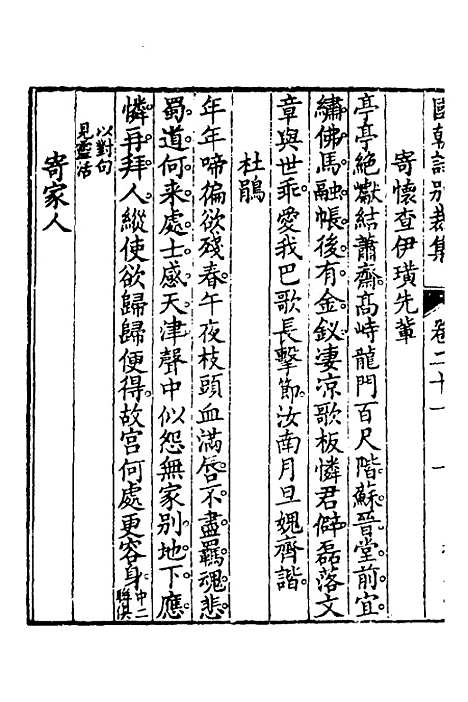 國朝詩別裁集 卷二十一
寄懷查伊璜先輩
亭亭絶巘結蕭齋高峙龍門百尺階蘇晉堂前宜
繡佛馬融帳後有金釵凄涼歌板憐君僻磊落文
章與世乖愛我巴歌長擊節汝南月旦媿齊諧
杜鵑
年年啼徧欲殘春午夜枝頭血滿唇不盡羈魂悲
蜀道何来處士感天津聲中似怨無家别地下應
憐再拜人縱使欲歸歸便得故宫何處更容身中二聯俱
以對句見靈活
寄家人